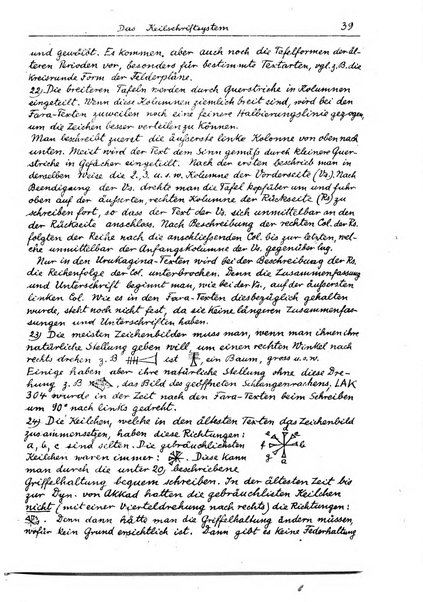 Das Keilschriftsystem 39
und gewölbt. Es kommen aber auch noch die Tafelformen der äl-
teren Perioden vor, besonders für bestimmte Textarten, vgl. z.B. die
kreisrunde Form der Felderpläne.
22) Die breiteren Tafeln werden durch Querstriche in Kolumnen
eingeteilt. Wenn diese Kolumnen ziemlich breit sind, wird bei den
Fara-Texten zuweilen noch eine feinere Halbierungslinie gezogen,
um die Zeichen besser verteilen zu können.
Man beschreibt zuerst die äußerste linke Kolonne von oben nach
unten. Meist wird der Text dem Sinn gemäß durch kleinere Quer-
striche in Gefächer eingeteilt. Nach der ersten beschrieb man in
derselben Weise die 2. 3. u. s. w. Kolumne der Vorderseite (Vs). Nach
Beendigung der Vs. drehte man die Tafel kopfüber um und fuhr
oben auf der äußersten, rechten Kolumne der Rückseite (Rs) zu
schreiben fort, so dass der Text der Vs. sich unmittelbar an den
der Rückseite anschloss. Nach Beschreibung der rechten Col. der Rs.
folgten der Reihe nach die anschließenden Col. bis zur letzten, wel-
che unmittelbar der Anfangskolumne der Vs. gegenüber lag.
Nur in den Urukagina-Texten wird bei der Beschreibung der Rs,
die Reihenfolge der Col. unterbrochen. Denn die Zusammenfassung
und Unterschrift beginnt man, wie bei der Vs., auf der äußersten
linken Col. Wie es in den Fara-Texten diesbezüglich gehalten
wurde, steht noch nicht fest, da sie keine längeren Zusammenfas-
sungen und Unterschriften haben.
23) Die meisten Zeichenbilder muss man, wenn man ihnen ihre
natürliche Stellung geben will, um einen rechten Winkel nach
rechts drehen z.B ist , ein Baum, gross u.s.w.
Einige haben aber ihre natürliche Stellung ohne diese Dre-
hung z.B , das Bild des geöffneten Schlangenrachens, LAK
304 wurde in der Zeit nach den Fara-Texten beim Schreiben
um 90° nach links gedreht.
24) Die Keilchen, welche in den ältesten Texten das Zeichenbild
zusammensetzen, haben diese Richtungen:
a, b, c sind selten. Die gebräuchlichsten
Keilchen waren immer: . Diese kann
man durch die unter 20, beschriebene
Griffelhaltung bequem schreiben. In der ältesten Zeit bis
zur Dyn. von AKKAD hatten die gebräuchlisten Keilchen
nicht (mit einer Vierteldrehung nach rechts) die Richtungen:
. Denn dann hätte man die Griffelhaltung ändern müssen,
wofür kein Grund ersichtlich ist. Dann gibt es keine Federhaltung